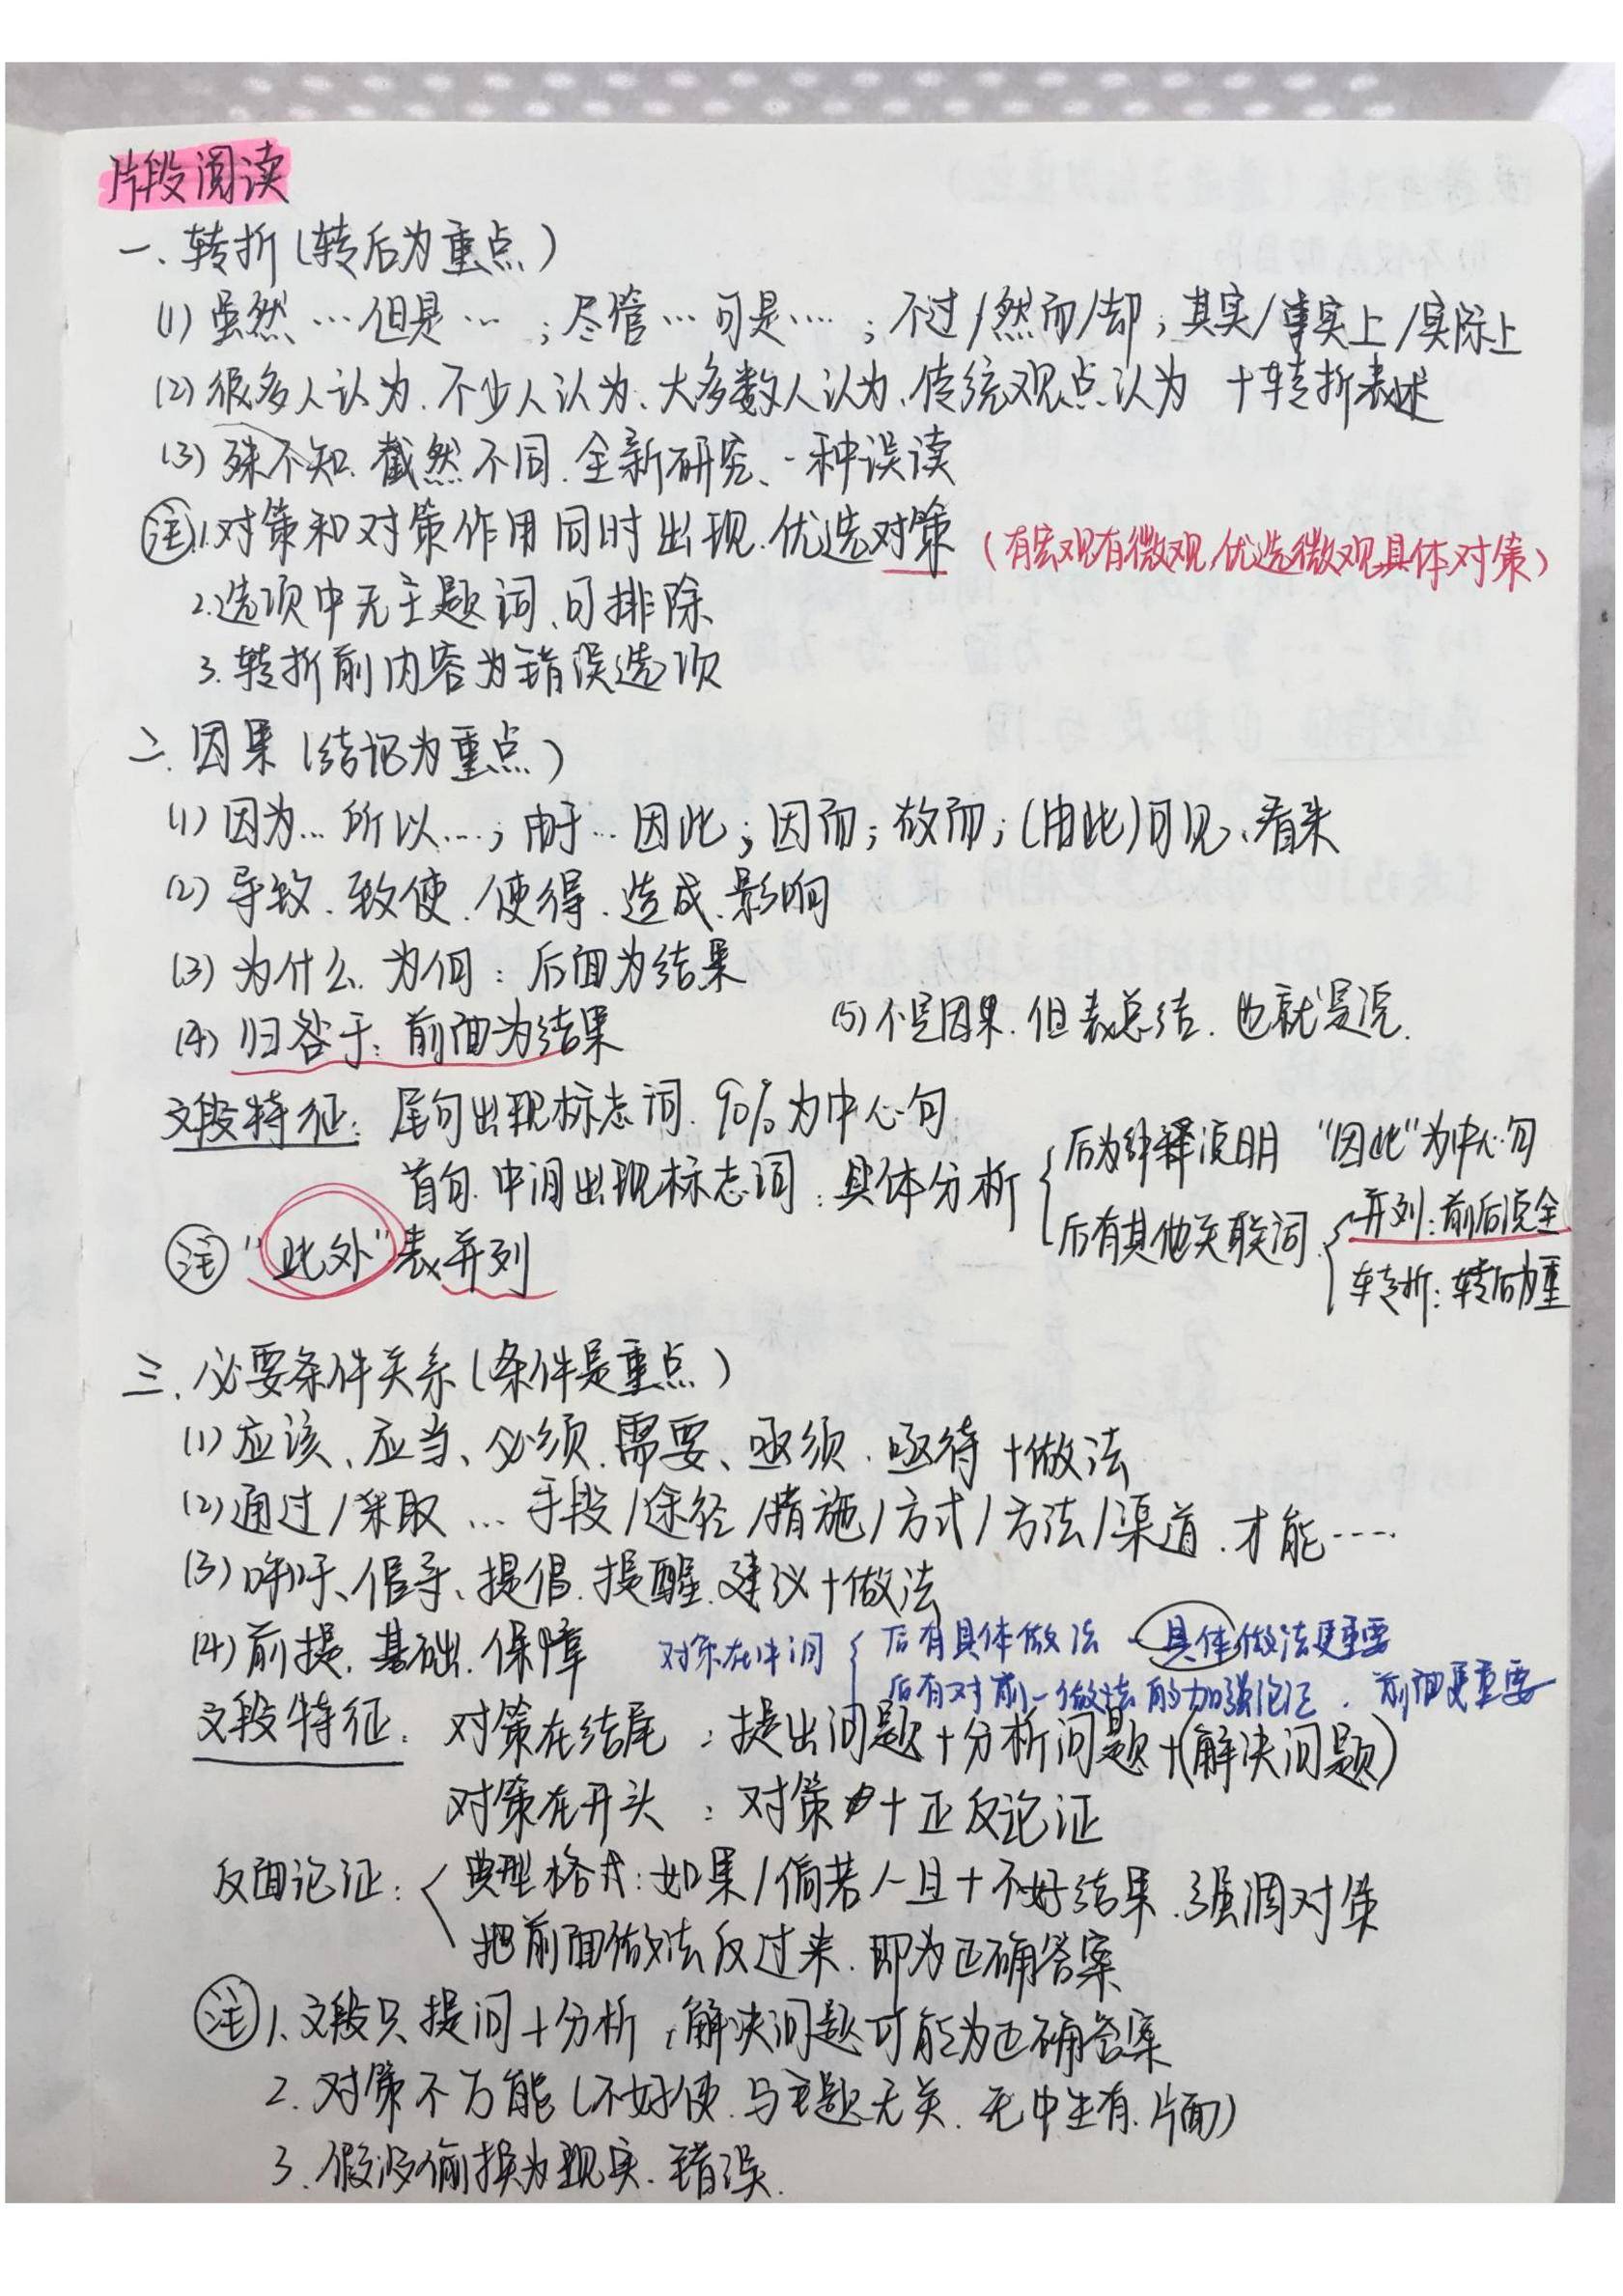 片段阅读
一、转折(转后为重点)
(1) 虽然…但是…；尽管…可是…；不过/然而/却；其实/事实上/实际上
(2) 很多人认为、不少人认为、大多数人认为、传统观点认为 +转折表述
(3) 殊不知、截然不同、全新研究、一种误读
注 1.对策和对策作用同时出现、优选对策 (有宏观有微观,优选微观具体对策)
2.选项中无主题词、可排除
3.转折前内容为错误选项
二、因果(结论为重点)
(1) 因为…所以…；由于…因此；因而；故而；(由此)可见、看来
(2) 导致、致使、使得、造成、影响
(3) 为什么、为何：后面为结果
(4) 归咎于：前面为结果
(5) 不是因果、但表总结、也就是说.
文段特征：尾句出现标志词、90%为中心句
首句、中间出现标志词：具体分析
后为解释说明 "因此"为中心句
后有其他关联词
并列：前后说全
转折：转后为重
注 "此外"表并列
三、必要条件关系(条件是重点)
(1) 应该、应当、必须、需要、亟须、亟待+做法
(2) 通过/采取…手段/途径/措施/方式/方法/渠道、才能……
(3) 呼吁、倡导、提倡、提醒、建议+做法
(4) 前提、基础、保障
对策在中间
后有具体做法 — 具体做法更重要
后有对前一做法的加强论证、前面更重要
文段特征：对策在结尾：提出问题+分析问题+(解决问题)
对策在开头：对策+正反论证
反面论证：典型格式：如果/倘若/一旦+不好结果、强调对策
把前面做法反过来、即为正确答案
注 1、文段只提问+分析，解决问题可能为正确答案
2. 对策不万能(不好使、与主题无关、无中生有、片面)
3. 假设偷换为现实、错误.